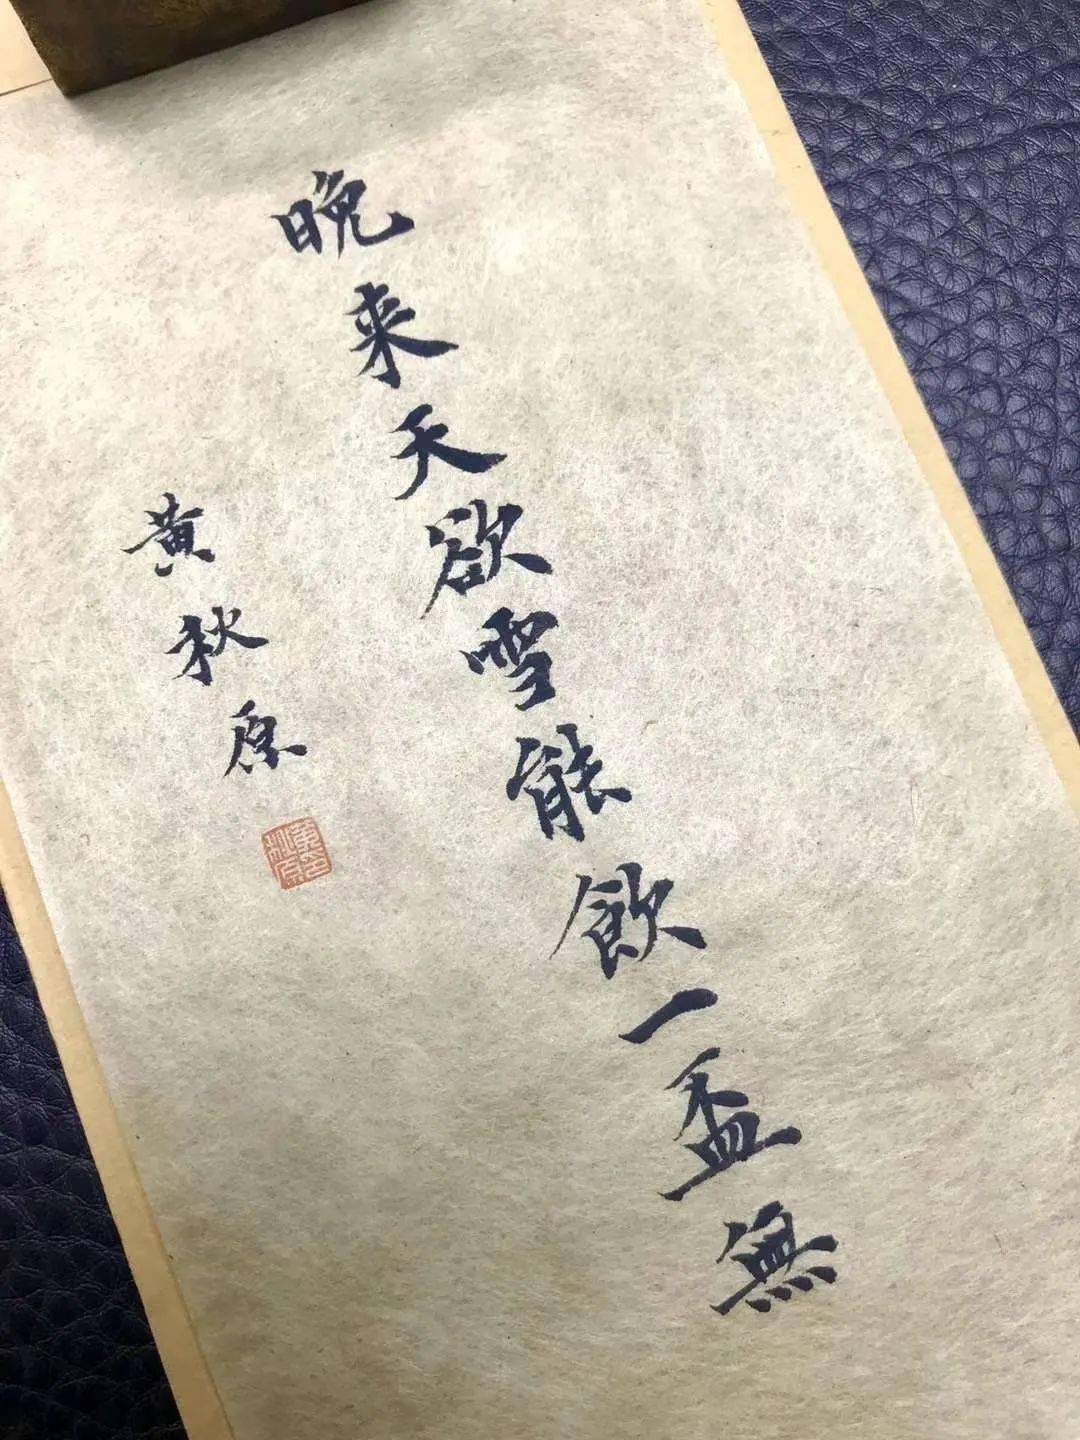 晚来天欲雪能飲一盃無
黄秋原
黄秋原